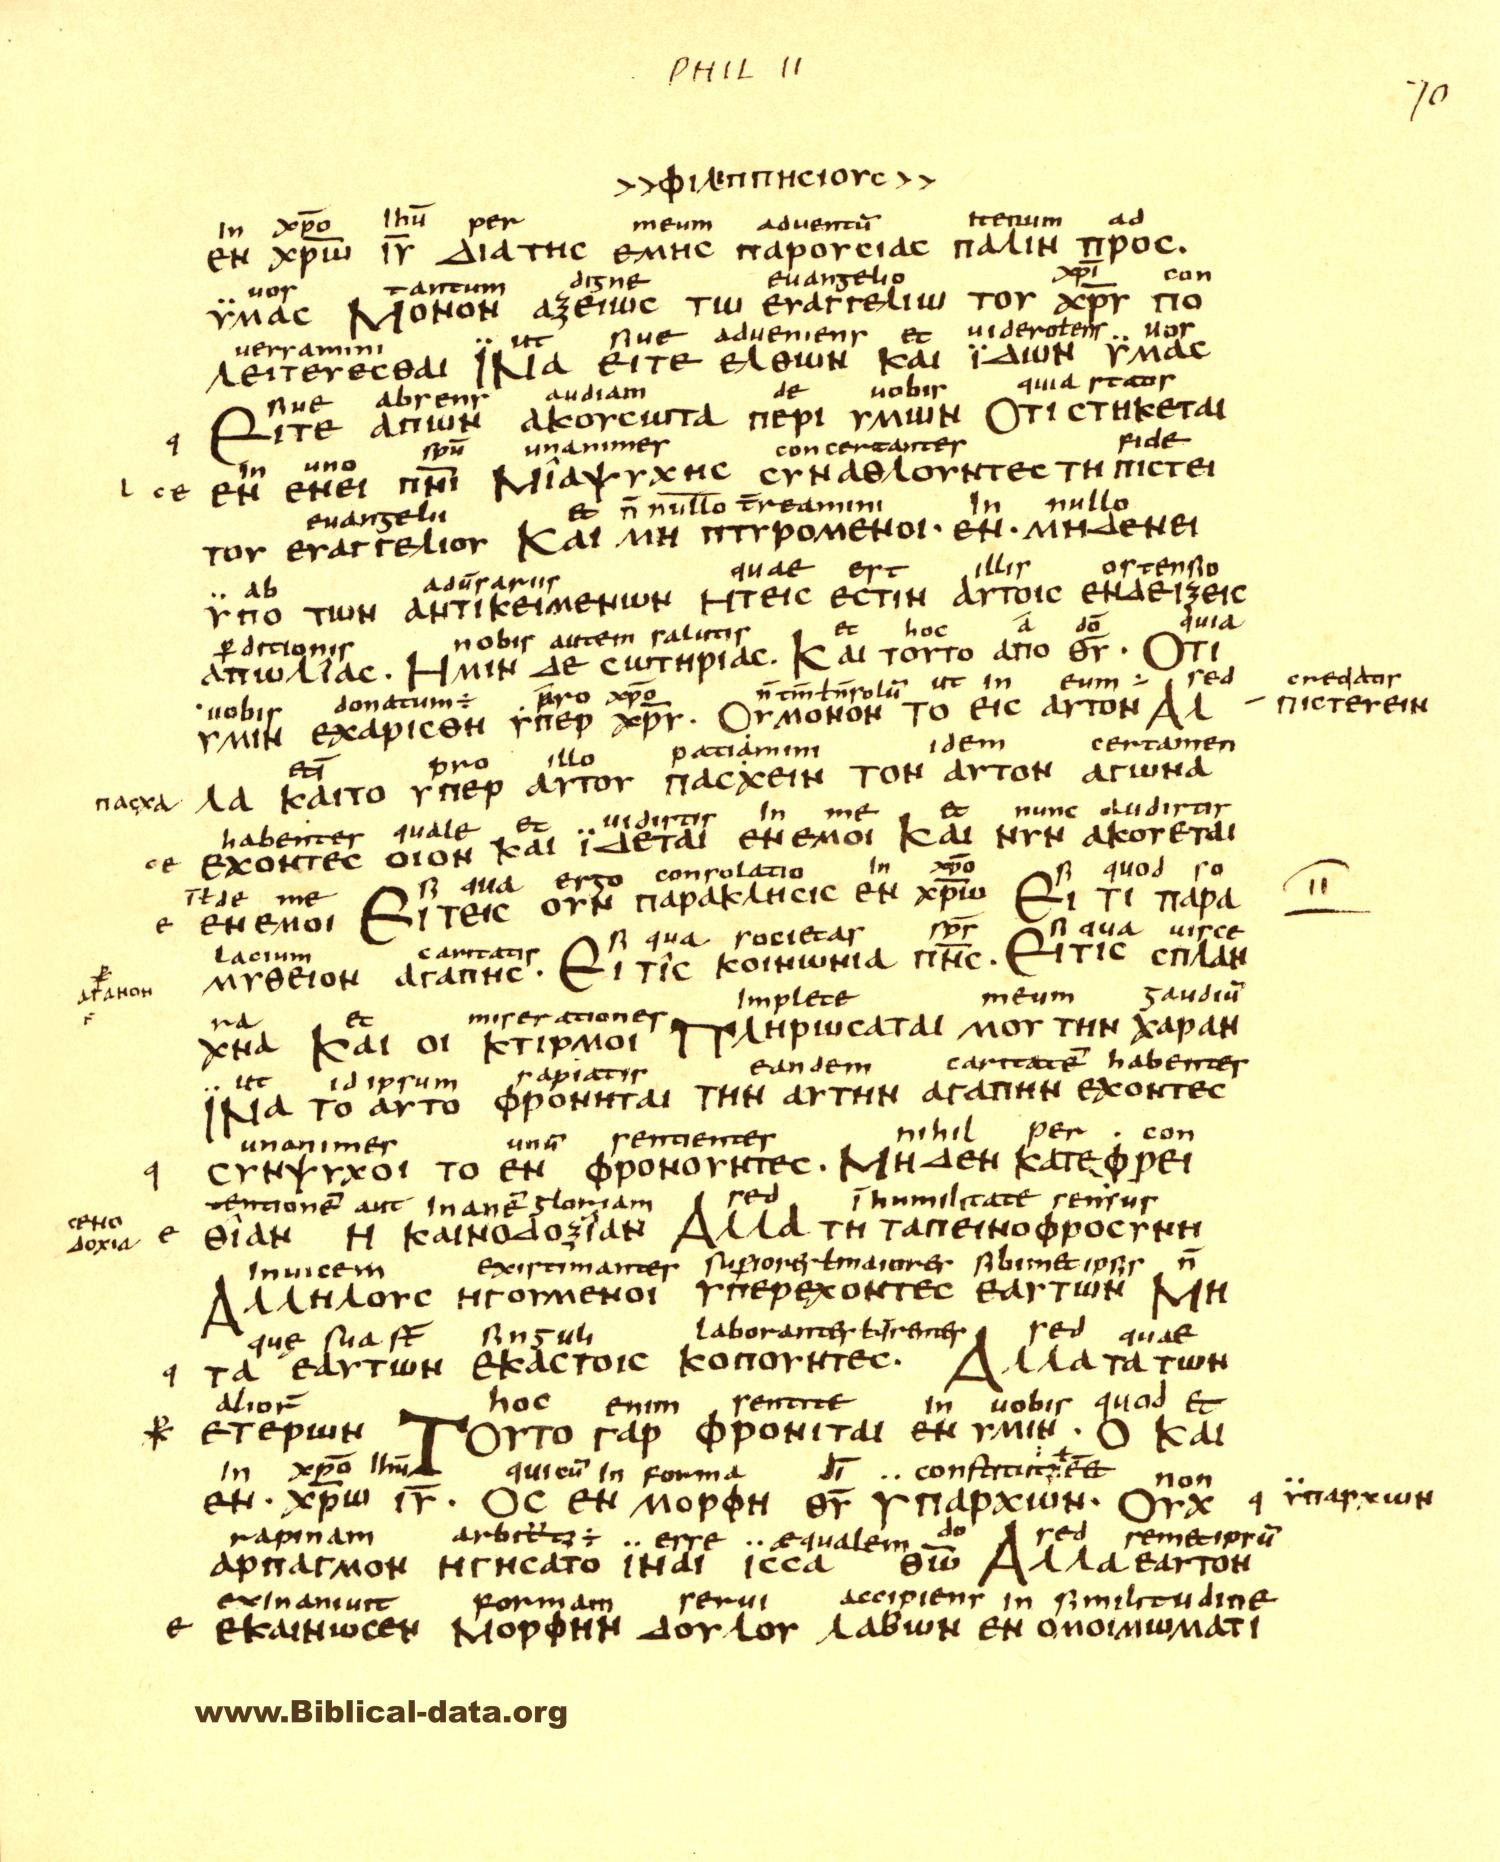 PHIL II
70
>>ΦΙΛΙΠΠΗCΙΟΥC>>
In xp̄o Ihū per meum aduentū iterum ad
ΕΝ ΧΡ̅Ω̅ Ι̅Υ̅ ΔΙΑ ΤΗC ΕΜΗC ΠΑΡΟΥCΙΑC ΠΑΛΙΝ ΠΡΟC.
uos tantum digne euangelio xp̄i con
ΫΜΑC ΜΟΝΟΝ ΑΞΕΙΩC ΤΩ ΕΥΑΓΓΕΛΙΩ ΤΟΥ ΧΡ̅Υ̅ ΠΟ
uersamini ut siue adueniens et uos
ΛΕΙΤΕΥΕCΘΑΙ ΪΝΑ ΕΙΤΕ ΕΛΘΩΝ ΚΑΙ ΪΔΩΝ ΫΜΑC
siue absens audiam de uobis quia statis
ΕΙΤΕ ΑΠΩΝ ΑΚΟΥCΩΤΑ ΠΕΡΙ ΥΜΩΝ ΟΤΙ CΤΗΚΕΤΑΙ
in uno spū unanimes concertantes fide
ΕΝ ΕΝΕΙ Π̅Ν̅Ι̅ ΜΙΑ ΨΥΧΗC CΥΝΑΘΛΟΥΝΤΕC ΤΗ ΠΙCΤΕΙ
euangelii et n̄ nullo In nullo
ΤΟΥ ΕΥΑΓΓΕΛΙΟΥ ΚΑΙ ΜΗ ΠΤΥΡΟΜΕΝΟΙ· ΕΝ· ΜΗΔΕΝΕΙ
ab adūsariis quae est illis ostensio
ΫΠΟ ΤΩΝ ΑΝΤΙΚΕΙΜΕΝΩΝ ΗΤΕΙC ΕCΤΙΝ ΑΥΤΟΙC ΕΝΔΕΙΞΕΙC
p̄ditionis nobis autem salutis et hoc ā dō quia
ΑΠΩΛΙΑC. ΗΜΙΝ ΔΕ CΩΤΗΡΙΑC. ΚΑΙ ΤΟΥΤΟ ΑΠΟ Θ̅Υ̅. ΟΤΙ
uobis donatum÷ pro xp̄o ut in eum sed credatis
ΥΜΙΝ ΕΧΑΡΙCΘΗ ΥΠΕΡ ΧΡ̅Υ̅. ΟΥΜΟΝΟΝ ΤΟ ΕΙC ΑΥΤΟΝ ΑΛ – ΠΙCΤΕΥΕΙΝ
etī pro illo patiamini idem certamen
ΠΑCΧΑ ΛΑ ΚΑΙ ΤΟ ΥΠΕΡ ΑΥΤΟΥ ΠΑCΧΕΙΝ ΤΟΝ ΑΥΤΟΝ ΑΓΩΝΑ
habentes quale et uidistis In me et nunc audistis
ΕΧΟΝΤΕC ΟΙΟΝ ΚΑΙ ΪΔΕΤΑΙ ΕΝ ΕΜΟΙ ΚΑΙ ΝΥΝ ΑΚΟΥΕΤΑΙ
de me si qua ergo consolatio In xp̄o si quod so
ΕΝ ΕΜΟΙ ΕΙ ΤΕΙC ΟΥΝ ΠΑΡΑΚΛΗCΙC ΕΝ ΧΡ̅Ω̅ ΕΙ ΤΙ ΠΑΡΑ II
lacium caritatis si qua societas sp̄s si qua uisce
ΜΥΘΕΙΟΝ ΑΓΑΠΗC. ΕΙ ΤΙC ΚΟΙΝΩΝΙΑ Π̅Ν̅C̅. ΕΙ ΤΙC CΠΛΑΝ
ΑΓΑΝΟΝ
ra et miserationes Implete meum gaudiū
ΧΝΑ ΚΑΙ ΟΙ ΚΤΙΡΜΟΙ ΠΛΗΡΩCΑΤΑΙ ΜΟΥ ΤΗΝ ΧΑΡΑΝ
ut id ipsum sapiatis eandem caritatē habentes
ΪΝΑ ΤΟ ΑΥΤΟ ΦΡΟΝΗΤΑΙ ΤΗΝ ΑΥΤΗΝ ΑΓΑΠΗΝ ΕΧΟΝΤΕC
unanimes unū sentientes nihil per con
CΥΝΨΥΧΟΙ ΤΟ ΕΝ ΦΡΟΝΟΥΝΤΕC. ΜΗΔΕΝ ΚΑΤΕΦΡΕΙ
tentionē aut Inanē gloriam sed ī humilitate sensus
CΕΝΟ
ΔΟΧΙΑ
ΘΙΑΝ Η ΚΑΙΝΟΔΟΞΙΑΝ ΑΛΛΑ ΤΗ ΤΑΠΕΙΝΟΦΡΟCΥΝΗ
Inuicem existimantes n̄
ΑΛΛΗΛΟΥC ΗΓΟΥΜΕΝΟΙ ΥΠΕΡΕΧΟΝΤΕC ΕΑΥΤΩΝ ΜΗ
que sua st̄ singuli sed quae
ΤΑ ΕΑΥΤΩΝ ΕΚΑCΤΟΙC ΚΟΠΟΥΝΤΕC. ΑΛΛΑ ΤΑ ΤΩΝ
alior̄ hoc enim sentite In uobis quod et
ΕΤΕΡΩΝ ΤΟΥΤΟ ΓΑΡ ΦΡΟΝΙΤΑΙ ΕΝ ΥΜΙΝ. Ο ΚΑΙ
In xp̄o Ihū qui cū In forma dī non
ΕΝ· ΧΡ̅Ω̅ Ι̅Υ̅. ΟC ΕΝ ΜΟΡΦΗ Θ̅Υ̅ ΥΠΑΡΧΩΝ. ΟΥΧ ΫΠΑΡΧΩΝ
rapinam esse æqualem dō sed semetipsū
ΑΡΠΑΓΜΟΝ ΗΓΗCΑΤΟ ΙΝΑΙ ΙCCΑ Θ̅Ω̅ ΑΛΛΑ ΕΑΥΤΟΝ
exinaniuit formam serui accipiens in similitudine
ΕΚΑΙΝΩCΕΝ ΜΟΡΦΗΝ ΔΟΥΛΟΥ ΛΑΒΩΝ ΕΝ ΟΜΟΙΜΩΜΑΤΙ
www.Biblical-data.org